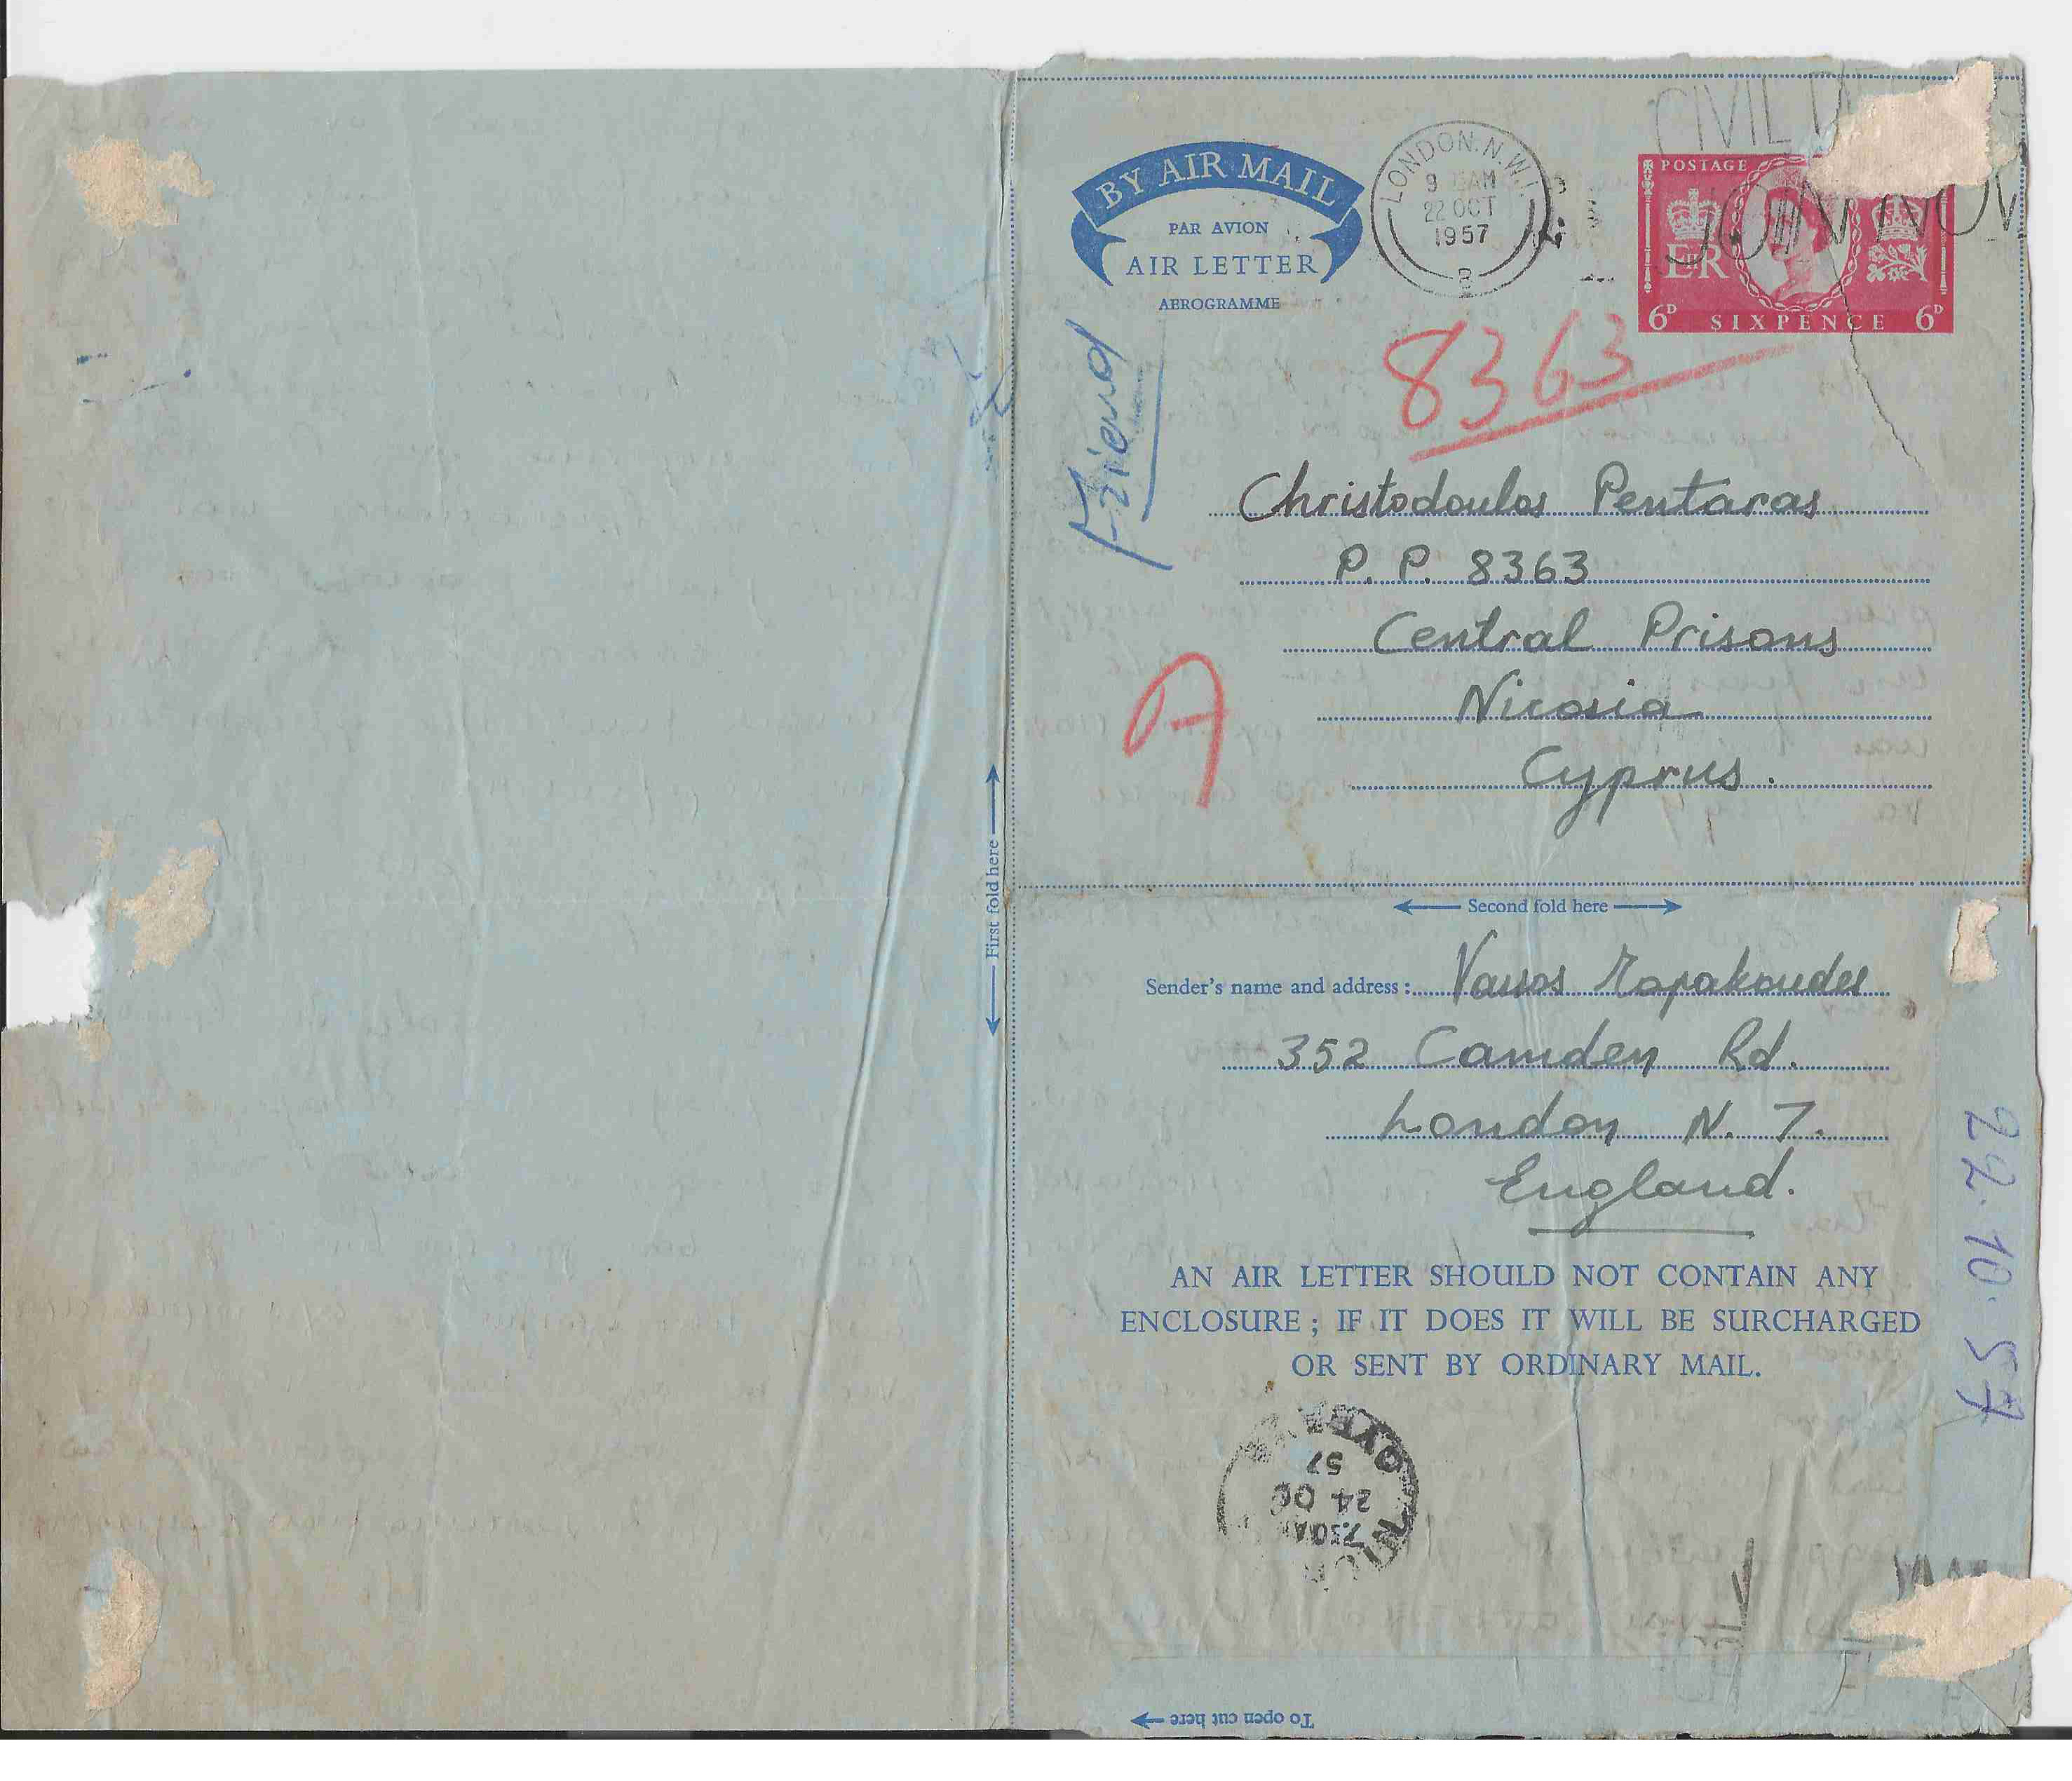 BY AIR MAIL
PAR AVION
AIR LETTER
AEROGRAMME
LONDON. N.W.1.
9 AM
22 OCT
1957
B
CIVIL
JOIN NOW
POSTAGE
E II R
6D SIXPENCE 6D
8363
Friend
Christodoulos Pentaras
P. P. 8363
Central Prisons
Nicosia
Cyprus.
A
First fold here
Second fold here
Sender's name and address: Vassos
352 Camden Rd.
London N. 7.
England.
22.10.57
AN AIR LETTER SHOULD NOT CONTAIN ANY
ENCLOSURE ; IF IT DOES IT WILL BE SURCHARGED
OR SENT BY ORDINARY MAIL.
7.30AM
24 OC
57
To open cut here